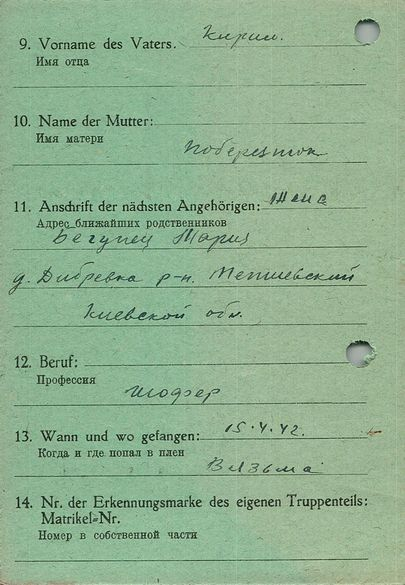 9. Vorname des Vaters. Кирил.
Имя отца
10. Name der Mutter:
Имя матери
Поберезток
11. Anschrift der nächsten Angehörigen: Жена
Адрес ближайших родственников
Бегунец Мария
д. Дибревка р-н.
Киевской обл.
12. Beruf:
Профессия
шофер
13. Wann und wo gefangen: 15.4.42.
Когда и где попал в плен
Вязьма
14. Nr. der Erkennungsmarke des eigenen Truppenteils:
Matrikel=Nr.
Номер в собственной части